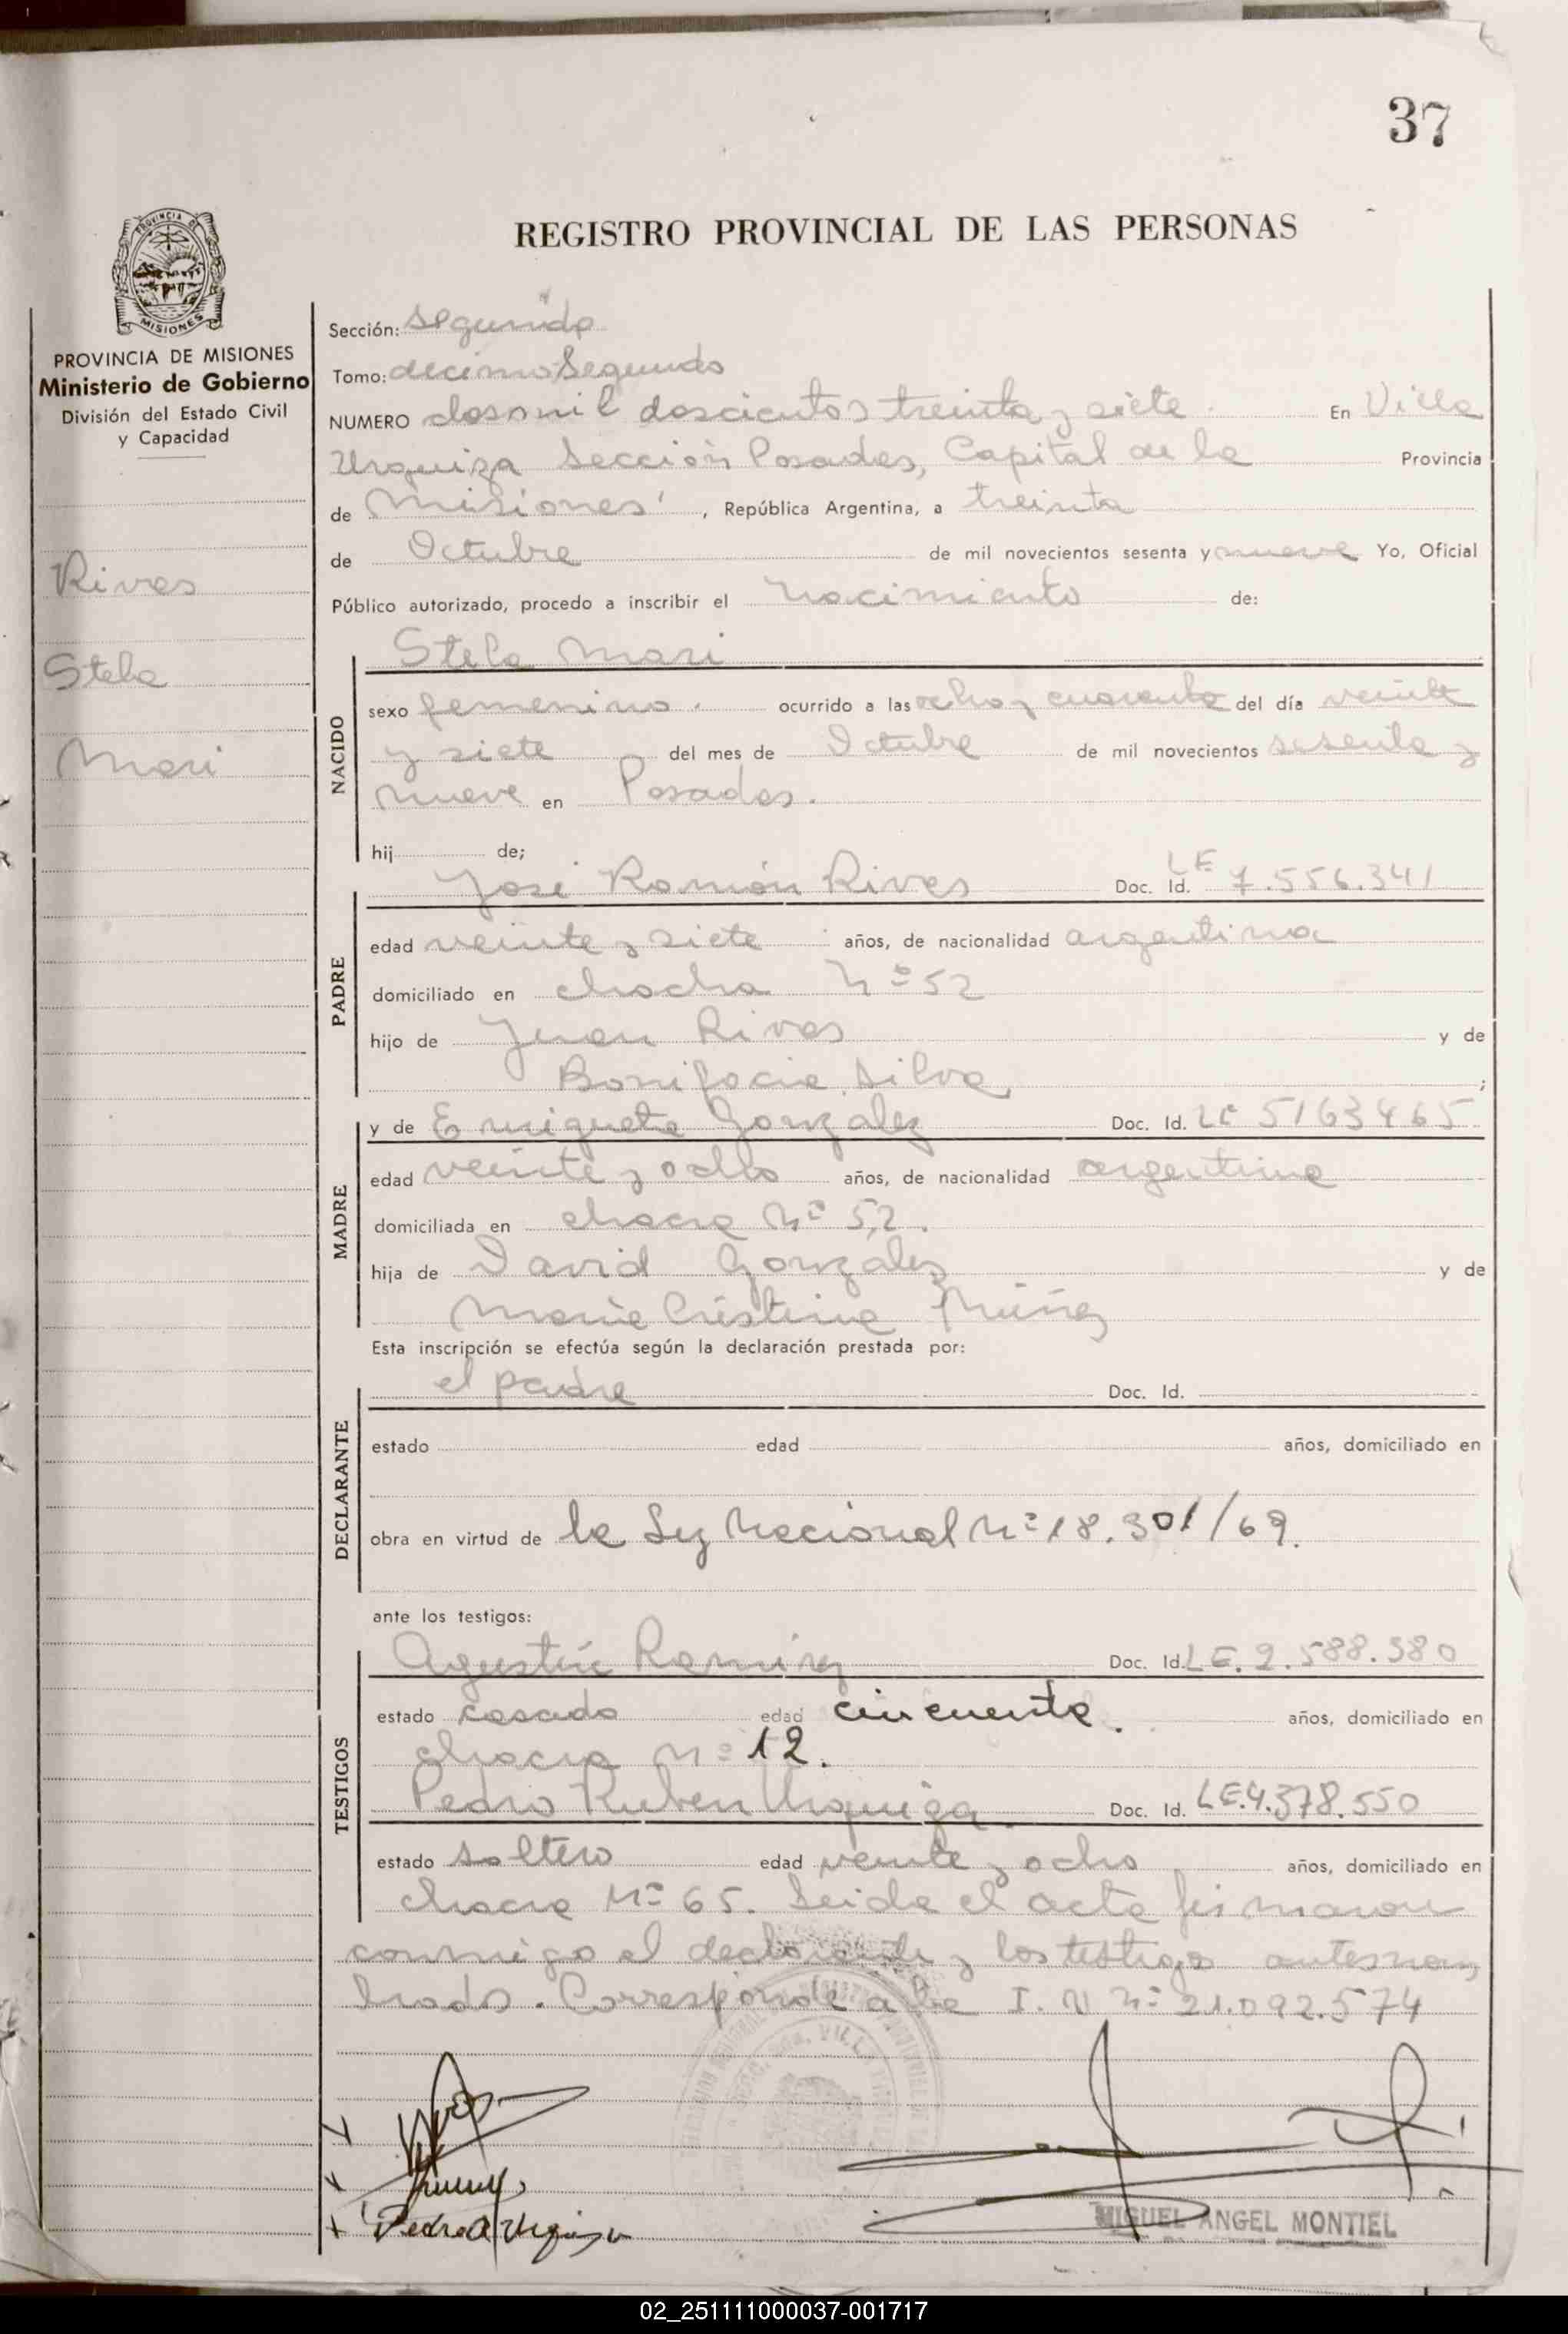 37
REGISTRO PROVINCIAL DE LAS PERSONAS
PROVINCIA DE MISIONES
Ministerio de Gobierno
División del Estado Civil
y Capacidad
Rives
Stela
Mari
Sección: Segunda
Tomo: decimo Segundo
NUMERO dos mil doscientos treinta y siete. En Villa
Urquiza Sección Posadas, Capital de la Provincia
de Misiones, República Argentina, a treinta
de Octubre de mil novecientos sesenta y nueve Yo, Oficial
Público autorizado, procedo a inscribir el nacimiento de:
Stela Mari
NACIDO
sexo femenino. ocurrido a las ocho y cuarenta del día veinte
y siete del mes de Octubre de mil novecientos sesenta y
nueve en Posadas.
hij de;
José Ramón Rives Doc. Id. LE 7.556.341
PADRE
edad veinte y siete años, de nacionalidad argentina
domiciliado en chacra Nº 52
hijo de Juan Rivas y de
Bonifacia Silva, ;
MADRE
y de Enriqueta Gonzalez Doc. Id. LC 5163465
edad veinte y ocho años, de nacionalidad argentina
domiciliada en chacra Nº 52.
hija de David Gonzalez y de
Maria Cristina Núñez
Esta inscripción se efectúa según la declaración prestada por:
el padre Doc. Id.
DECLARANTE
estado edad años, domiciliado en
obra en virtud de la Ley Nacional Nº 18.301/69.
ante los testigos:
Agustín Ramirez Doc. Id. LE. 2.588.380
TESTIGOS
estado casado edad cincuenta. años, domiciliado en
chacra Nº 12.
Pedro Ruben Urquiza. Doc. Id. LE.4.378.550
estado soltero edad veinte y ocho años, domiciliado en
chacra Nº 65. Leida el acta firmaron
conmigo el declarante y los testigo antesnom
brado. Corresponde a la I. N Nº 21.092.574
MIGUEL ANGEL MONTIEL
02_251111000037-001717